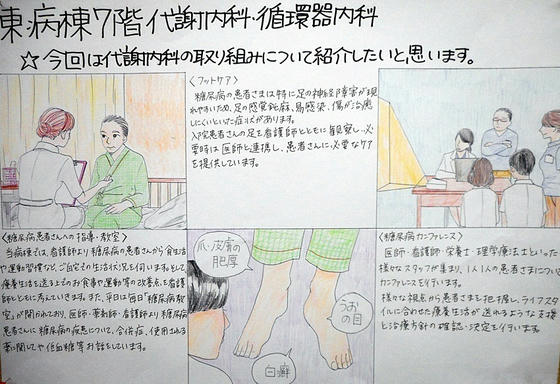 東病棟7階 代謝内科・循環器内科
☆今回は代謝内科の取り組みについて紹介したいと思います。
〈フットケア〉
糖尿病の患者さまは特に足の神経障害が現
れやすいため、足の感覚鈍麻、易感染、傷が治癒
しにくいといった症状があります。
入院患者さんの足を看護師とともに観察し、必
要時は医師と連携し、患者さんに必要なケア
を提供しています。
〈糖尿病患者さんへの指導・教室〉
当病棟では、看護師より糖尿病の患者さんから食生活
や運動習慣など、ご自宅での生活状況を伺います。そして
療養生活を送る上でのお食事や運動等の改善点を看護
師とともに考えていきます。また、平日は毎日「糖尿病教
室」が開かれており、医師・薬剤師・看護師より糖尿病
患者さんに糖尿病の疾患について、合併症、使用される
薬に関してや低血糖等お話をしています。
爪・皮膚の
肥厚
うお
の目
白癬
〈糖尿病カンファレンス〉
医師・看護師・栄養士・理学療法士といった
様々なスタッフが集まり、1人1人の患者さまについて
カンファレンスを行います。
様々な視点から患者さまを把握し、ライフスタ
イルに合わせた療養生活が送れるような支援
と治療方針の確認・決定を行います。